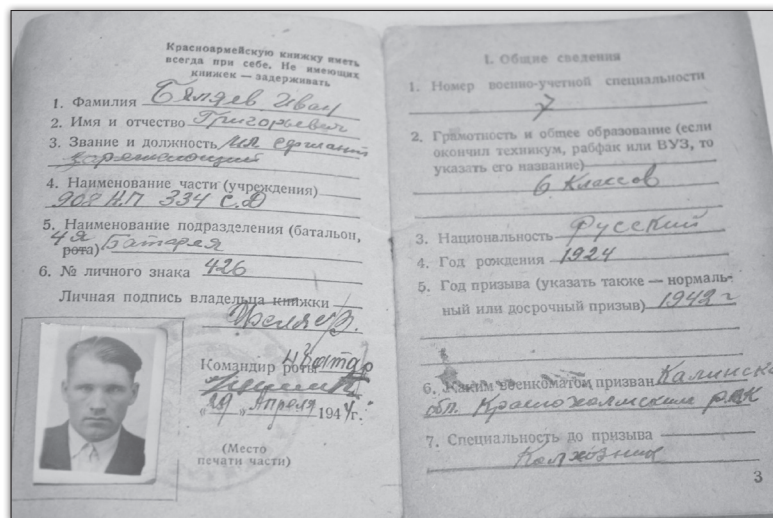 Красноармейскую книжку иметь
всегда при себе. Не имеющих
книжек — задерживать
1. Фамилия Беляев Иван
2. Имя и отчество Григорьевич
3. Звание и должность мл сержант
заряжающий
4. Наименование части (учреждения)
908 АП 334 С.Д
5. Наименование подразделения (батальон,
4я
рота) Батарея
6. № личного знака 426
Личная подпись владельца книжки
Командир рота 4 батар
„29 „ Апреля 1944г.
(Место
печати части)
I. Общие сведения
1. Номер военно-учетной специальности
7
2. Грамотность и общее образование (если
окончил техникум, рабфак или ВУЗ, то
указать его название)
6 классов
3. Национальность Русский
4. Год рождения 1924
5. Год призыва (указать также — нормаль-
ный или досрочный призыв) 1942 г
6. Каким военкоматом призван Калинска
обл. Краснохолмским РВК
7. Специальность до призыва
Колхозник
3